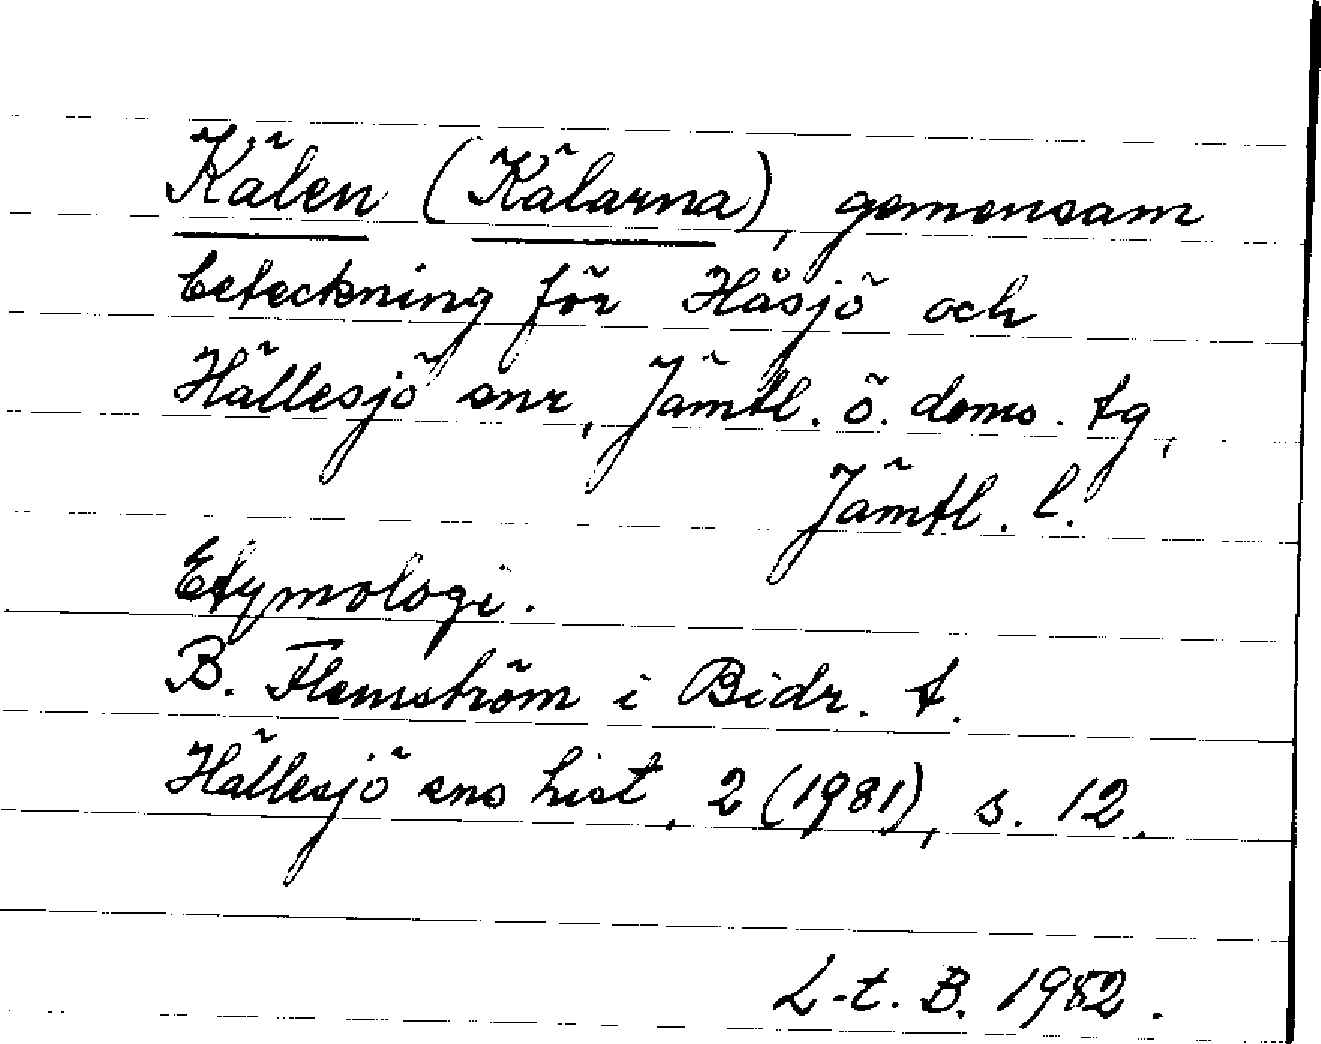 Kälen (Kälarna), gemensam
beteckning för Håsjö och
Hällesjö snr, Jämtl. ö. doms. tg,
Jämtl. l.
Etymologi.
B. Flemström i Bidr. t.
Hällesjö sns hist. 2 (1981), s. 12.
L-t. B. 1982.